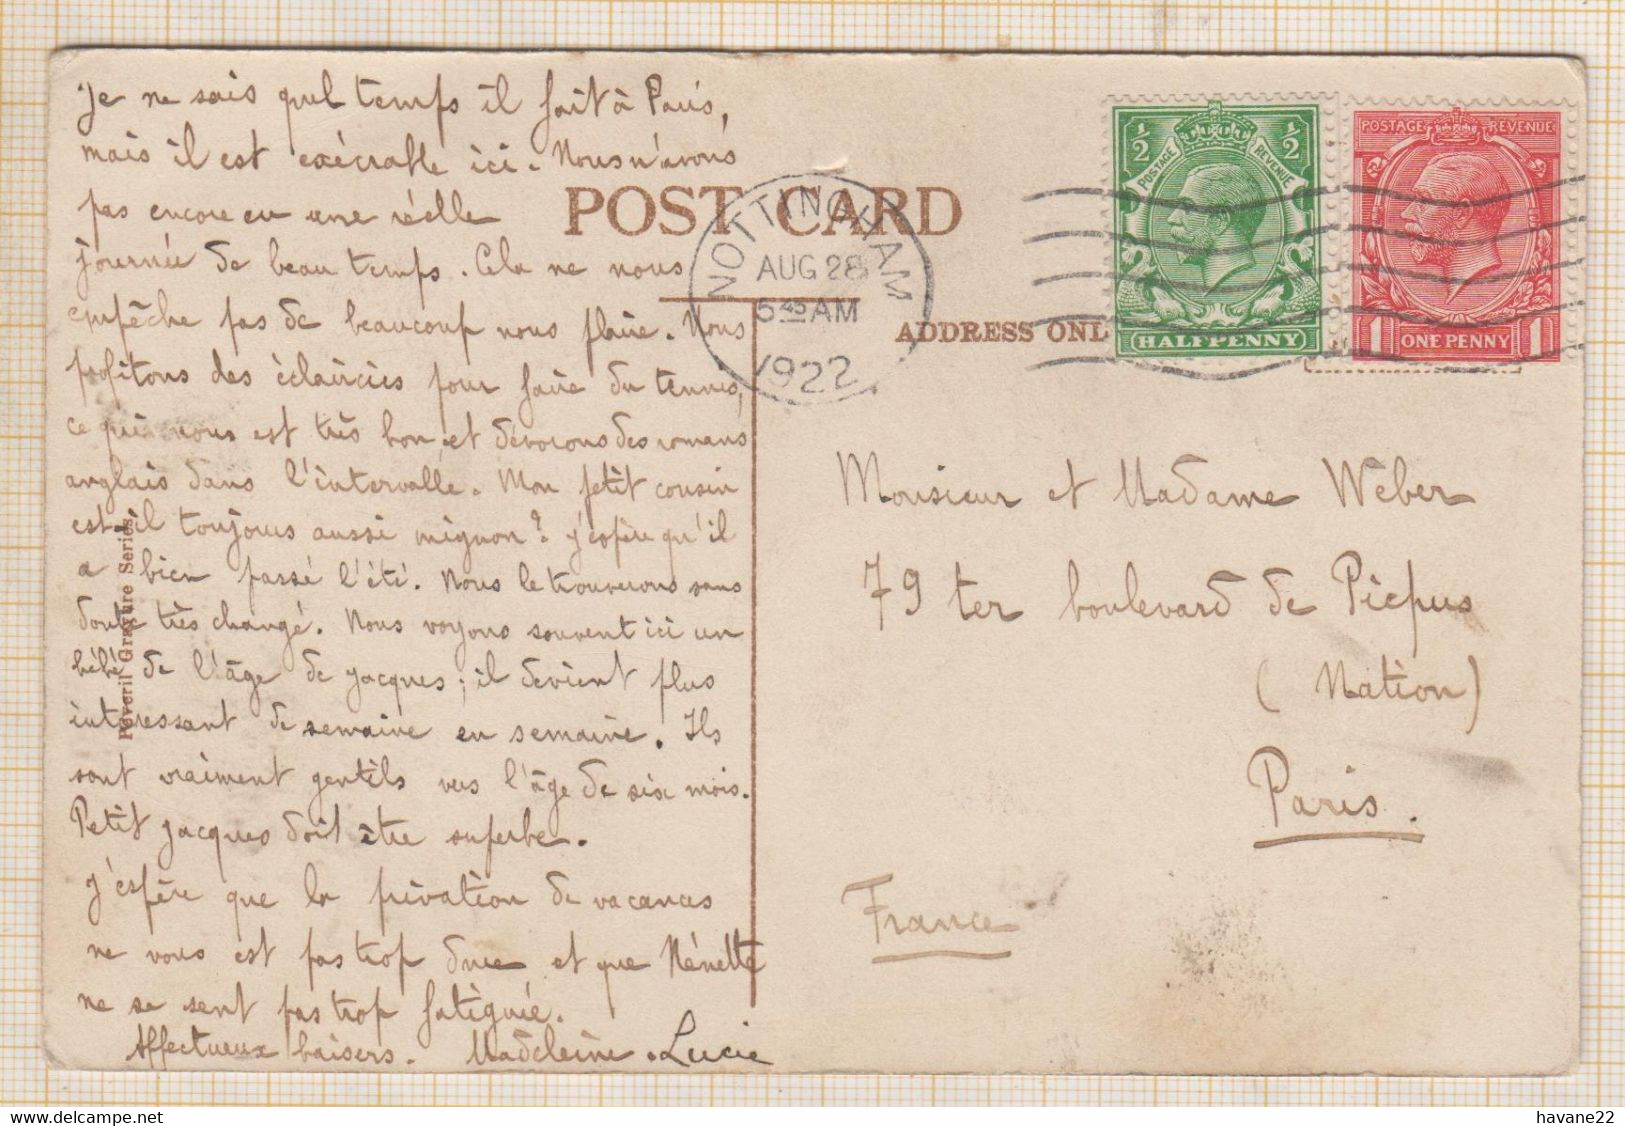 Je ne sais quel temps il fait à Paris,
mais il est exécrable ici. Nous n'avons
pas encore eu une réelle
journée de beau temps. Cela ne nous
empêche pas de beaucoup nous plaire. Nous
profitons des éclaircies pour faire du tennis,
ce qui nous est très bon et dévorons des romans
anglais dans l'intervalle. Mon petit cousin
est-il toujours aussi mignon? J'espère qu'il
a bien passé l'été. Nous le trouverons sans
doute très changé. Nous voyons souvent ici un
bébé de l'âge de Jacques; il devient plus
intéressant de semaine en semaine. Ils
sont vraiment gentils vers l'âge de six mois.
Petit Jacques doit être superbe.
J'espère que la privation de vacances
ne vous est pas trop dure et que Nénette
ne se sent pas trop fatiguée.
Affectueux baisers. Madeleine. Lucie
Peveril Gravure Series
POST CARD
ADDRESS ONL
NOTTINGHAM
AUG 28
5 45 AM
1922
½ ½
POSTAGE REVENUE
HALFPENNY
POSTAGE REVENUE
1 ONE PENNY 1
Monsieur et Madame Weber
79 ter boulevard de Picpus
(Nation)
Paris.
France
havane22